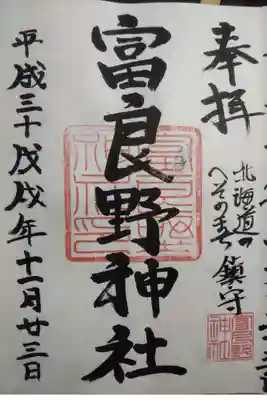 奉拝
北海道の
へそのまち
鎮守
富良野神社
平成三十戊戌年十一月廿三日
富良野
神社